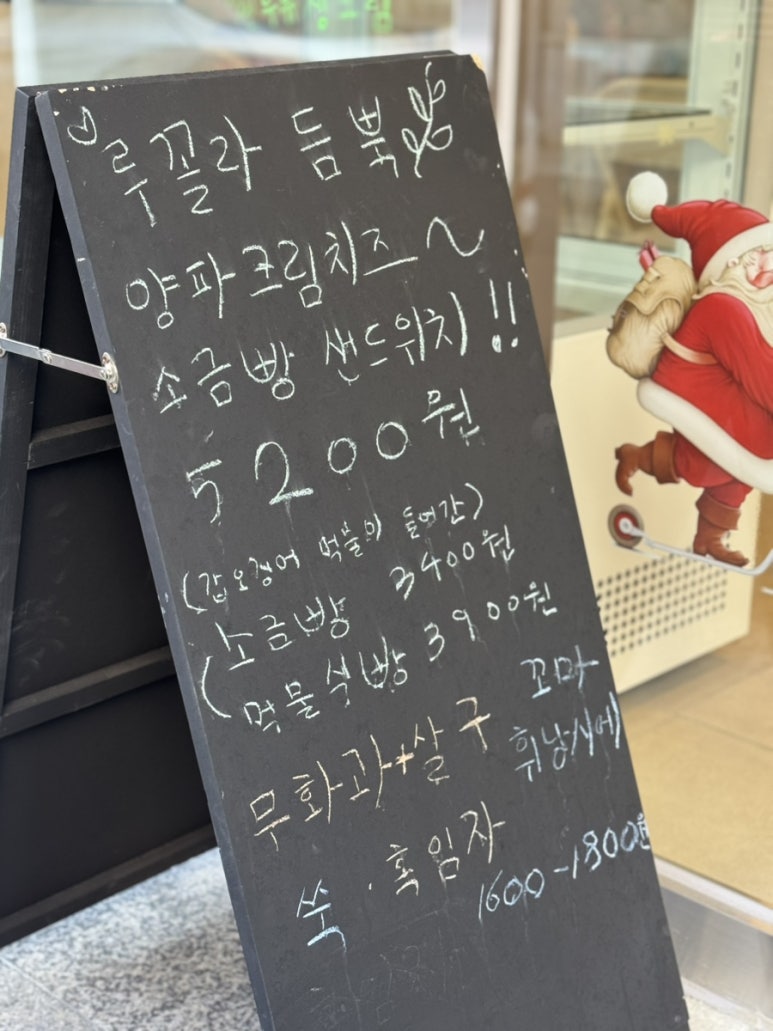 루꼴라 듬뿍
양파크림치즈~
소금빵 샌드위치!!
5200원
(갑오징어 먹물이 들어간)
소금빵 3400원
(먹물식빵 3900원
무화과+살구 꼬마
휘낭시에)
쑥·흑임자
1600-1800원